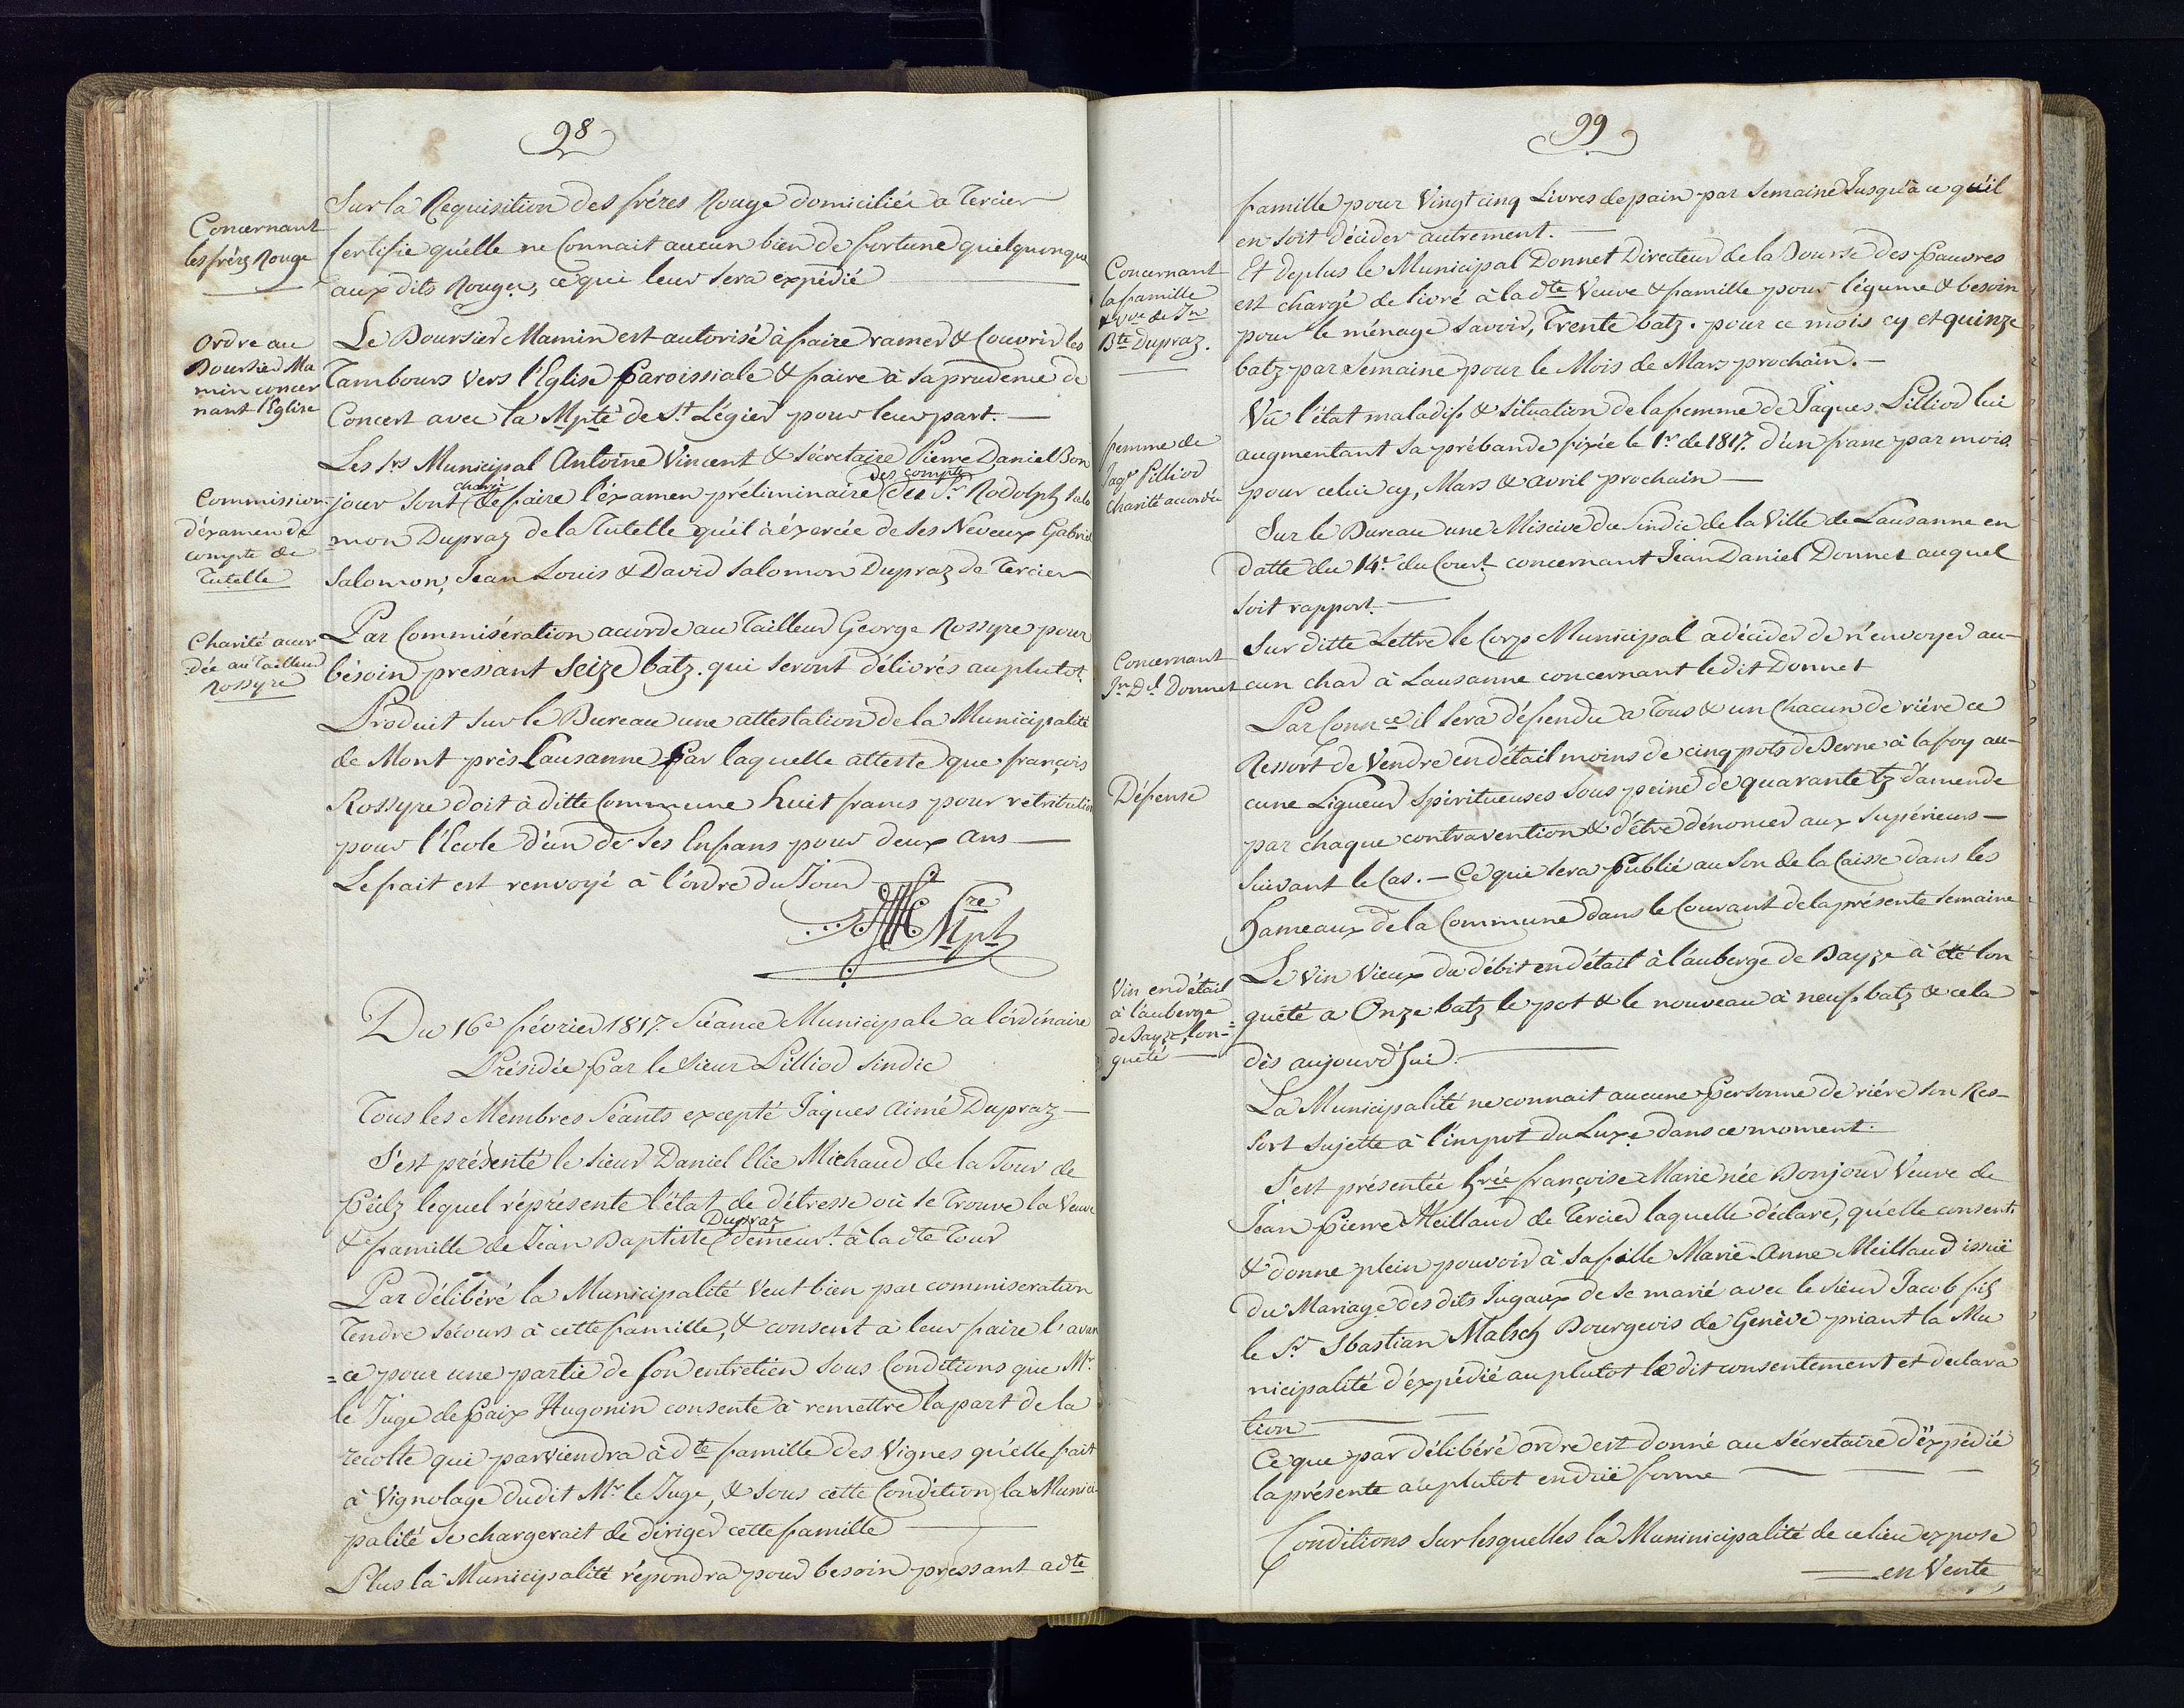 98
Concernant
les frérs Rouge
Sur la Requisition des fréres Rouge domiciliée a Tercier
certifie qu'elle ne Connait aucun bien de fortune quelquonque
aux dits Rouges, ce qui leur sera expédié
Ordre au
Boursier Ma
min concer
nant l'Eglise
Le Boursier Mamin est autorisé à faire ramer & Couvrir les
Tambours vers l'Eglise Paroissiale & faire à sa prudence de
Concert avec la Mpté de St. Légier pour leur part.
Commission
d'examen de
compte de
Tutelle
Les Srs Municipal Antoine Vincent & Sécretaire Pierre Daniel Bon
jour sont chargé de faire l'éxamen préliminaire des compte du Sr. Rodolph Salo
mon Dupraz de la Tutelle qu'il à éxercée de ses Neveux Gabriel
Salomon, Jean Louis & David Salomon Dupraz de Tercier
Charité accor
dée au Tailleur
Rossyre
Par Commisération accorde au Tailleur George Rossyre pour
bésoin pressant Seize batz. qui seront délivrés au plutot.
Produit sur le Bureau une attestation de la Municipalité
de Mont près Lausanne Par laquelle atteste que françois
Rossyre doit à ditte Commune huit francs pour rétribution
pour l'Ecole d'un de ses Enfans pour deux ans
Le fait est renvoyé à l'ordre du Jour
Sre
Mpt
Du 16e février 1817. Séance Municipale a l'órdinaire
Présidée Par le Sieur Pilliod Sindic
Tous les Membres Séants excepté Jaques Aimé Dupraz
S'est présenté le Sieur Daniel Elie Michaud de la Tour de
Peilz lequel réprésente l'état de détresse où se Trouve la Veuve
& famille de Jean Baptiste Dupraz demeurt. à la dte Tour
Par délibéré la Municipalité Veut bien par commiseration
Tendre sécours à cette famille, & consent à leur faire l'avan
=ce pour une partie de son entretien sous Conditions que Mr.
le Juge de Paix Hugonin consente à remettre la part de la
recolte qui parviendra à dte famille des Vignes qu'elle fait
à Vignolage dudit Mr le Juge, & sous cette Condition la Munici
palité se chargerait de diriger cette famille
Plus la Municipalité répondra pour besoin pressant a dte
99
famille pour Vingt cinq Livres de pain par semaine Jusqu'à ce qu'il
en soit décider autrement.
Concernant
la famille
& Vve de Jn
Bte Dupraz.
Et deplus le Municipal Donnet Directeur de la Bourse des Pauvres
est chargé de livré à la dte Veuve & famille pour légume & besoin
pour le ménage Savoir, Trente batz. pour ce mois cy et quinze
batz par Semaine pour le Mois de Mars prochain.
femme de
Jaqs Pilliod
Charité accordée
Vu l'état maladif & Situation de la femme de Jaques Pilliod lui
augmentant sa prébande fixée le 1r. de 1817. d'un franc par mois
pour celui cy, Mars & avril prochain
Sur le Bureau une Miscive du Sindic de la Ville de Lausanne en
datte du 14e. du Court. concernant Jean Daniel Donnet auquel
soit rapport.
Concernant
Jn Dl. Donnet
Sur ditte Lettre le Corps Municipal a décider de n'envoyer au-
cun char à Lausanne concernant le dit Donnet
Défense
Par Connce il sera défendu a Tous & un Chacun de riére ce
Ressort de Vendre en détail moins de cinq pots de Berne à la foy au-
cune Liqueur Spiritueuses sous peine de quarante bz d'amende
par chaque contravention & d'être dénoncer aux Supérieurs
suivant le Cas. — Ce qui sera Publié au Son de la Caisse dans les
hameaux de la Commune dans le Courant de la présente Semaine
Vin en détail
à l'áuberge
de Bayze, lon-
guété
Le Vin Vieux du débit en détail à l'áuberge de Bayze à été lon
guété a Onze batz le pot & le nouveau à neuf batz & cela
dès aujourd'hui.
La Municipalité ne connait aucune Personne de riére son Res-
sort sujette à l'impot du Luxe dans ce moment.
S'est présentée hrée françoise Marie née Bonjour Veuve de
Jean Pierre Meillaud de Tercier laquelle déclare, qu'elle consent
& donne plein pouvoir à sa fille Marie-Anne Meillaud issuë
du Mariage des dits Jugaux de se marié avec le Sieur Jacob fils
le Sr. Sbastian Malsch Bourgeois de Genève priant la Mu
nicipalité d'éxpédié au plutot le dit consentement et déclara
tion
Ce que par délibéré ordre est donné au Sécretaire d'expédié
la présente au plutot en duë forme
Conditions sur lesquelles la Muninicipalité de ce lieu expose
en Vente